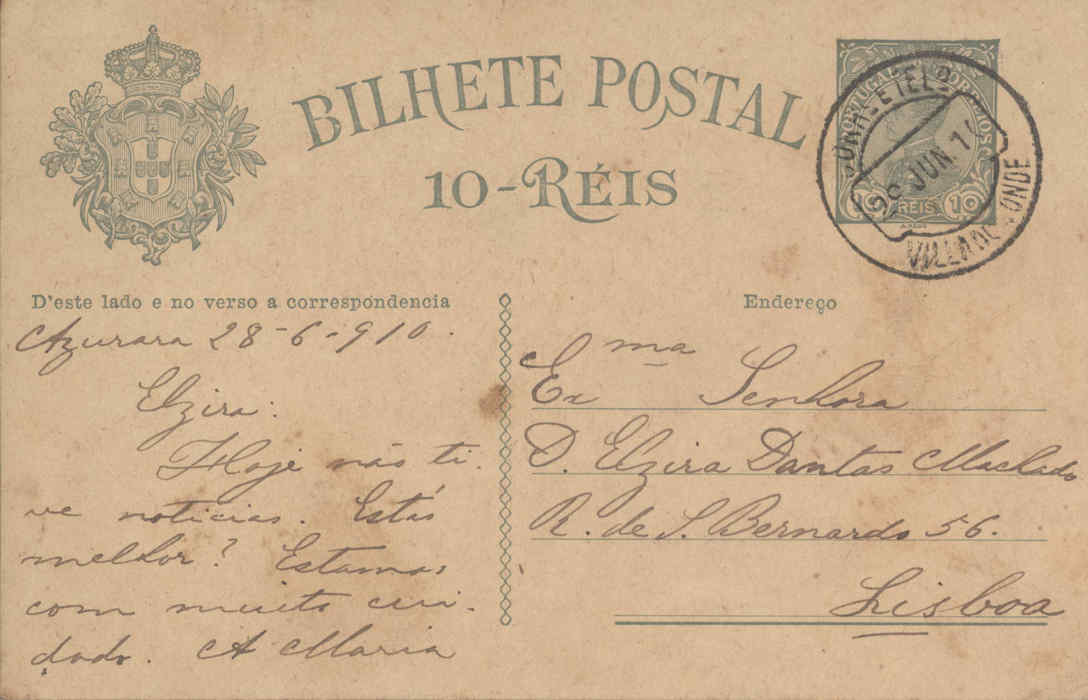 BILHETE POSTAL
10-RÉIS
PORTUGAL CORREIOS
10 REIS 10
28 JUN. 1
VILLA DO CONDE
D'este lado e no verso a correspondencia
Azurara 28-6-910.
Elzira:
Hoje não ti-
ve noticias. Estás
melhor? Estamos
com muito cui-
dado. A Maria
Endereço
Exma Senhora
D. Elzira Dantas Machado
R. de S. Bernardo 56.
Lisboa